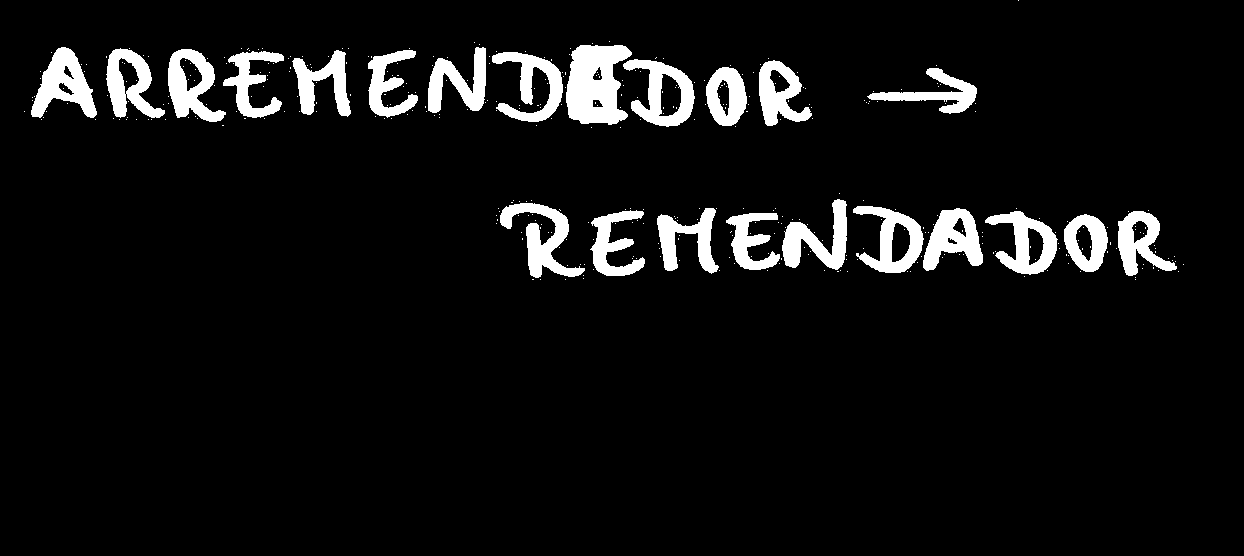 ARREMENDADOR →
REMENDADOR